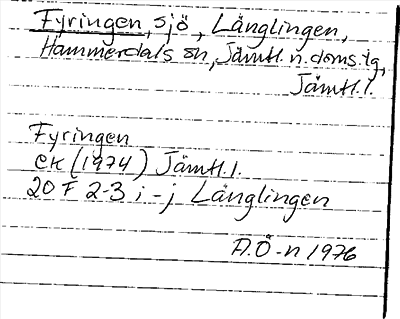 Fyringen, sjö, Långlingen,
Hammerdals sn, Jämtl. n. doms. tg,
Jämtl. l.
Fyringen
EK (1974) Jämtl. l.
20 F 2-3 i-j Långlingen
A.Ö-n 1976